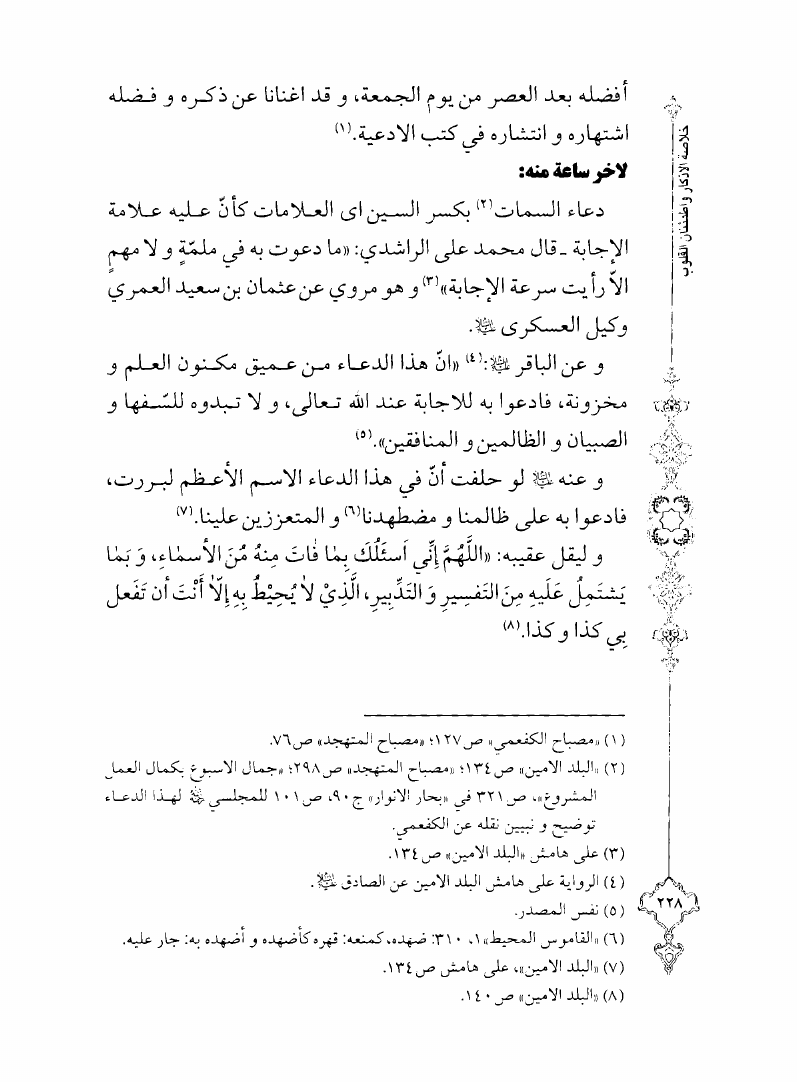 أفضله بعد العصر من يوم الجمعة، و قد اغنانا عن ذكره و فضله
اشتهاره و انتشاره في كتب الادعية.(١)
لاخر ساعة منه:
دعاء السمات(٢) بكسر السين اى العلامات كأنّ عليه علامة
الإجابة ـ قال محمد على الراشدي: «ما دعوت به في ملمّةٍ و لا مهمٍ
الاّ رأيت سرعة الإجابة»(٣) و هو مروي عن عثمان بن سعيد العمري
وكيل العسكرى ﷷ.
و عن الباقر ﷷ:(٤) «انّ هذا الدعاء من عميق مكنون العلم و
مخزونة، فادعوا به للاجابة عند الله تعالى، و لا تبدوه للسّفها و
الصبيان و الظالمين و المنافقين».(٥)
و عنه ﷷ لو حلفت أنّ في هذا الدعاء الاسم الأعظم لبررت،
فادعوا به على ظالمنا و مضطهدنا(٦) و المتعززين علينا.(٧)
و ليقل عقيبه: «اللَّهُمَّ إِنِّي اَسئَلُكَ بِمٰا فٰاتَ مِنهُ مُنَ الأسمٰاءِ، وَ بَمٰا
يَشتَمِلُ عَلَيهِ مِنَ التَفسِيرِ وَ التَدِّبيرِ، الَّذِيْ لاٰ يُحِيْطُ بِهِ إِلاّٰ أَنْتَ أن تَفَعل
بِي كذا و كذا.(٨)
(١) «مصباح الكفعمي» ص١٢٧؛ «مصباح المتهجد» ص٧٦.
(٢) «البلد الامين» ص١٣٤؛ «مصباح المتهجد» ص٢٩٨؛ «جمال الاسبوع بكمال العمل
المشروع»، ص٣٢١ في «بحار الانوار» ج٩٠، ص١٠١ للمجلسي لهذا الدعاء
توضيح و تبيين نقله عن الكفعمي.
(٣) على هامش «البلد الامين» ص١٣٤.
(٤) الرواية على هامش البلد الامين عن الصادق ﷷ.
(٥) نفس المصدر.
(٦) «القاموس المحيط» ١، ٣١٠: ضهده، كمنعه: قهره كأضهده و أضهده به: جار عليه.
(٧) «البلد الامين»، على هامش ص١٣٤.
(٨) «البلد الامين» ص١٤٠.
خلاصة الاذكار واطمئنان القلوب
٢٢٨